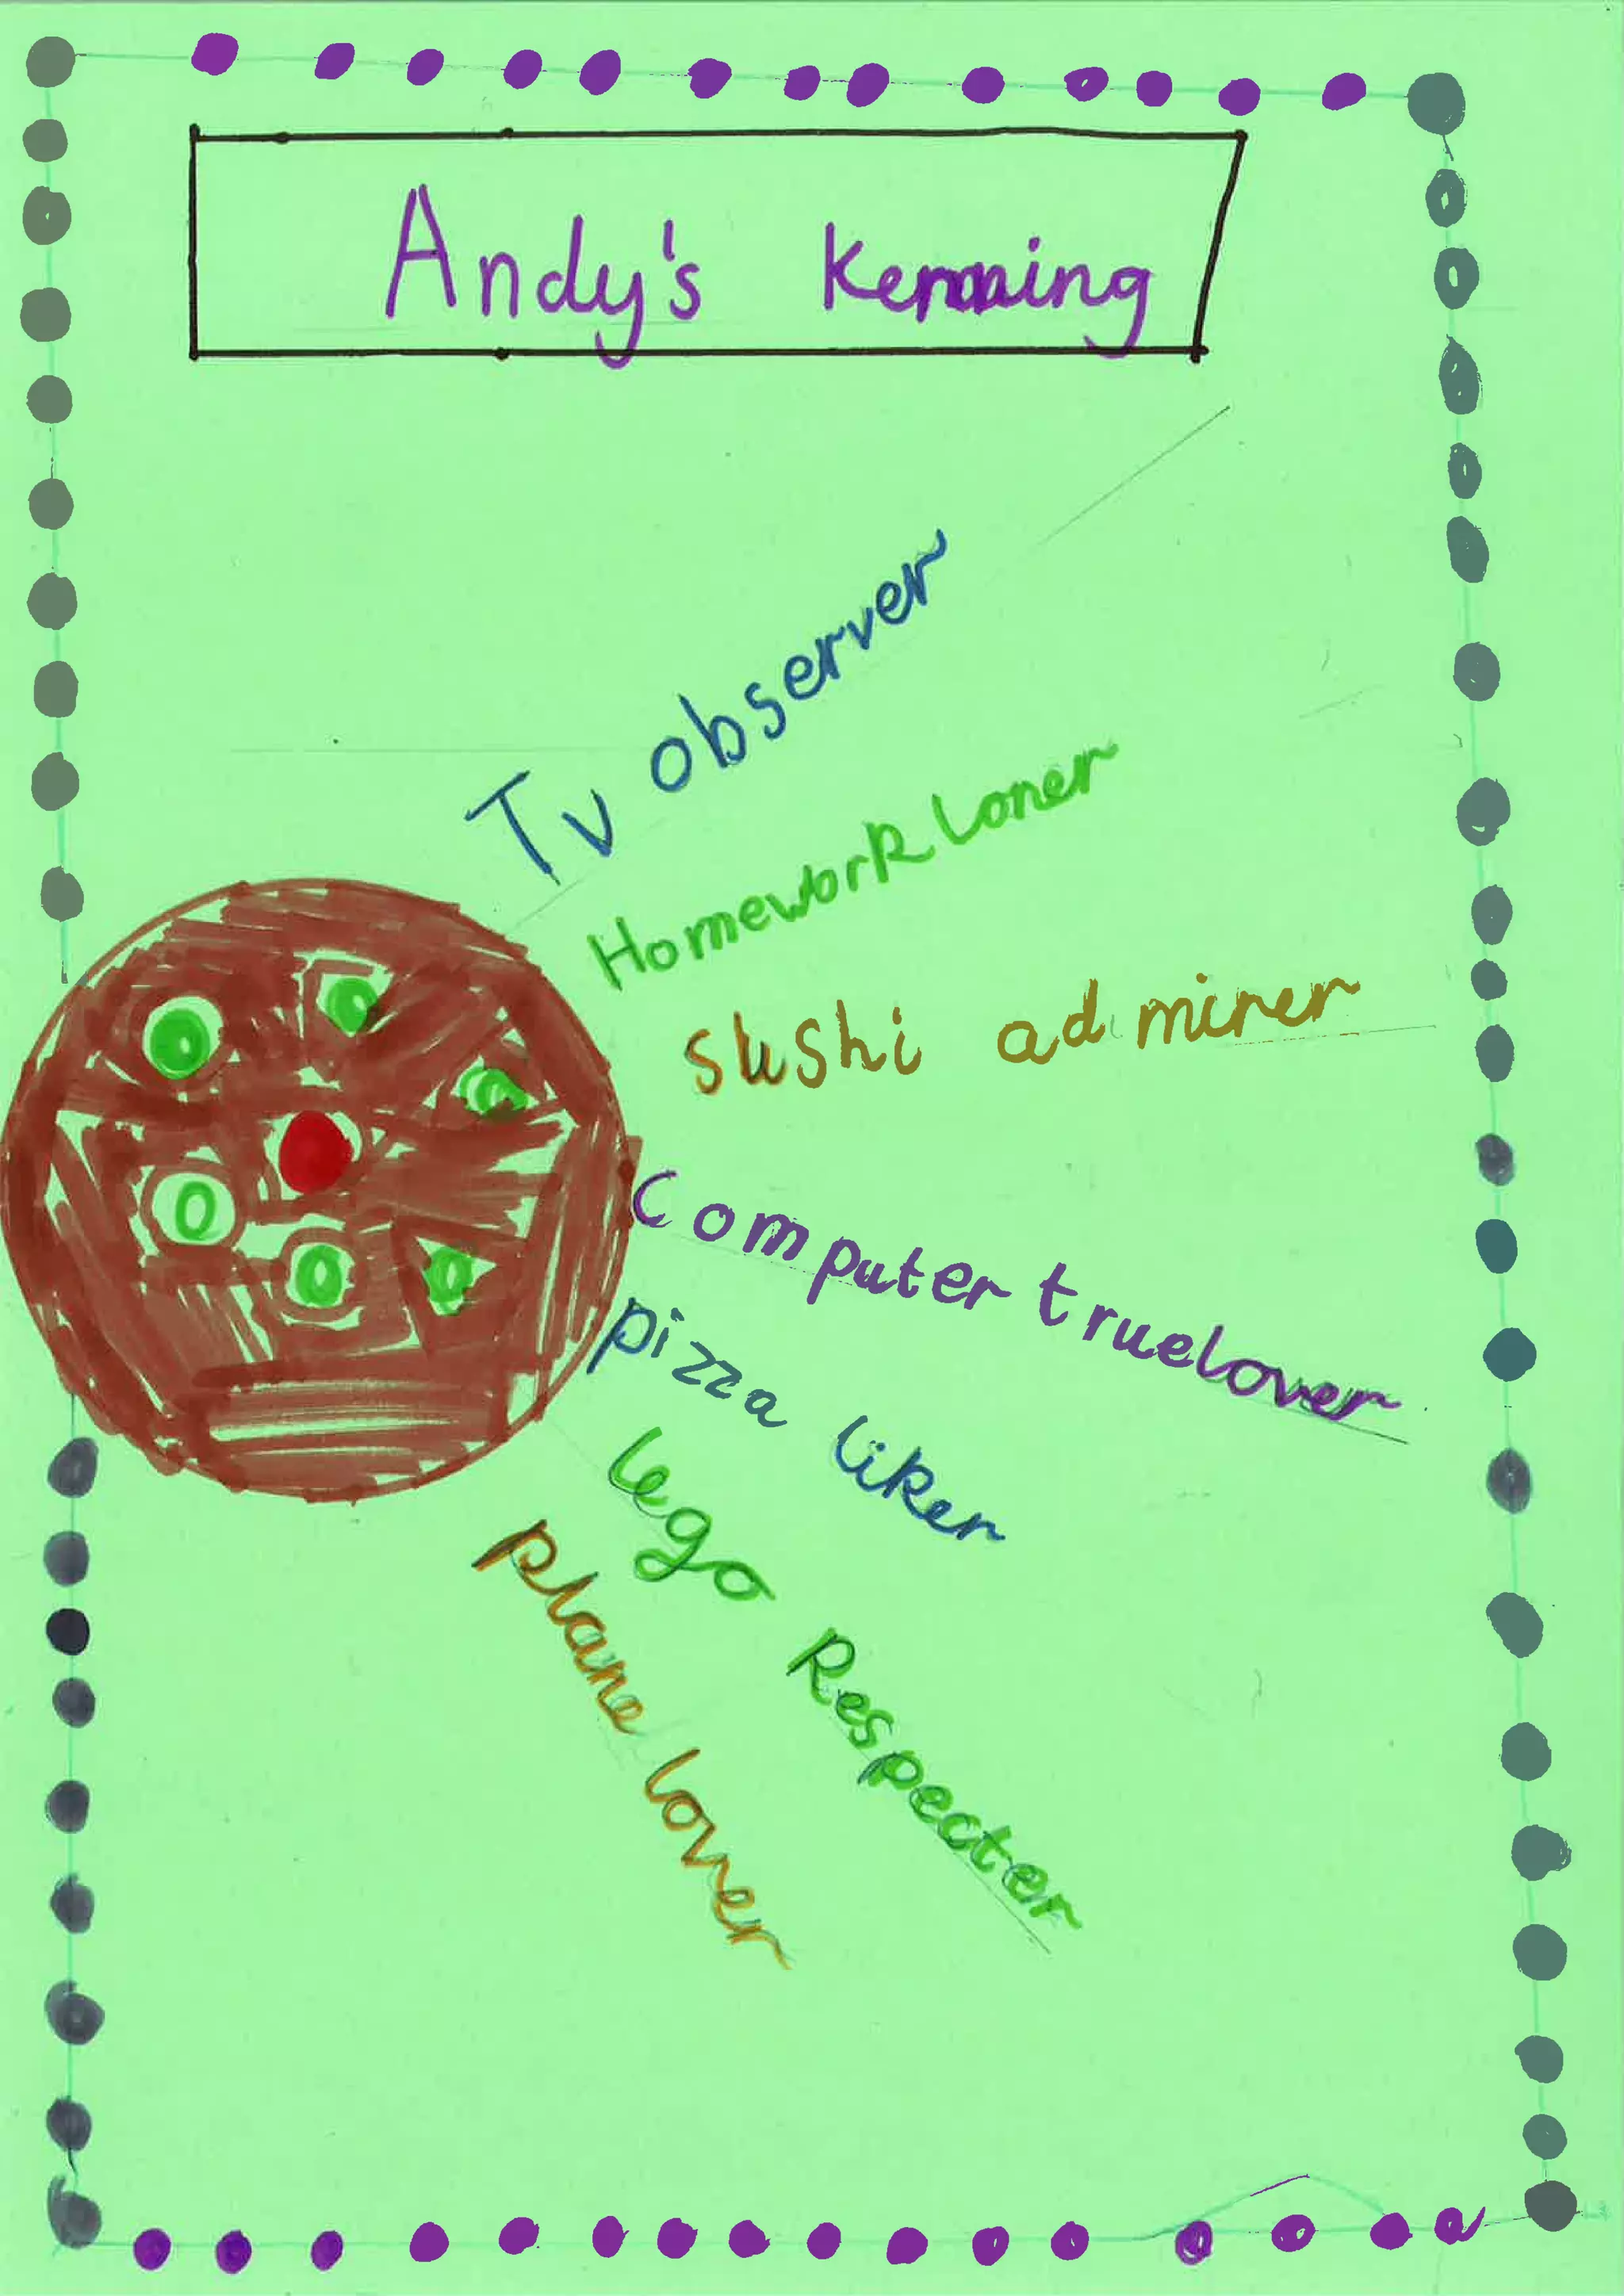 Andy's Kenning
Tv observer
Homework loner
Sushi admirer
Computer truelover
pizza liker
lego Respecter
plane lover